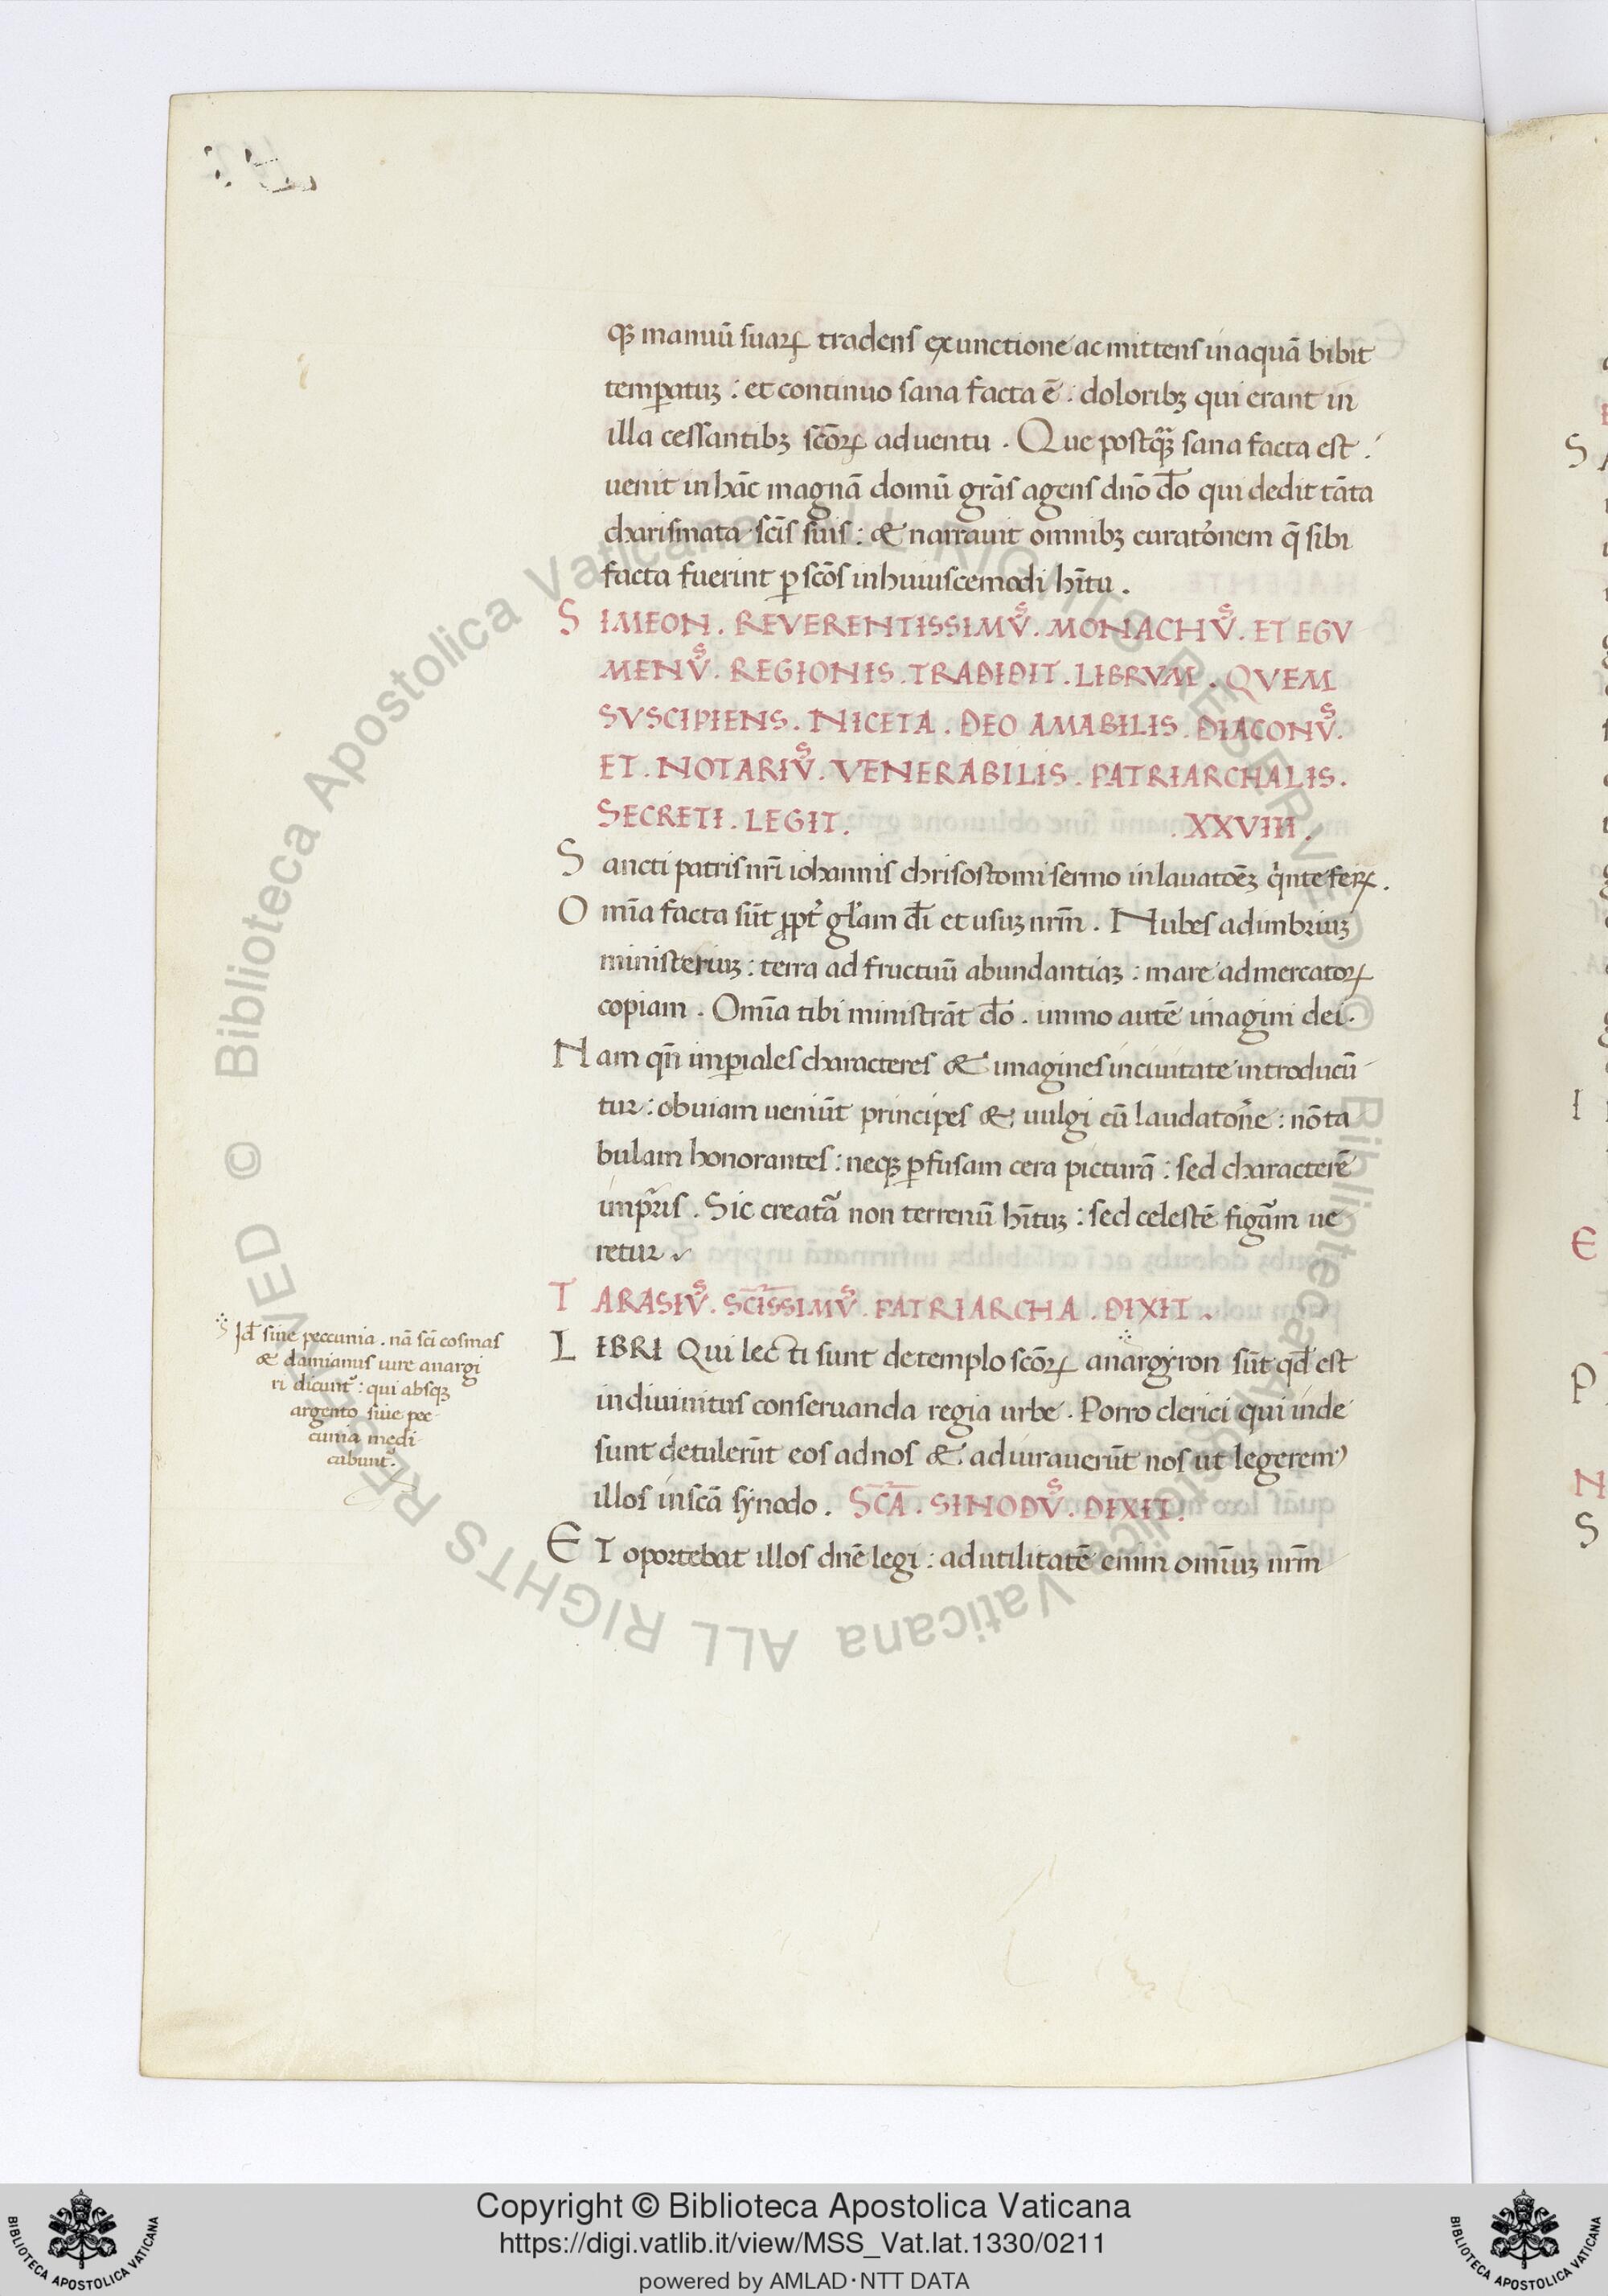 qꝫ manuū suaꝝ tradens exunctione ac mittens in aquā bibit
temꝑatuꝫ : et continuo sana facta ē : doloribꝫ qui erant in
illa cessantibꝫ scōꝝ aduentu . Que postqꝫ̄ sana facta est .
uenit in hāc magnā domū grās agens dnō dō qui dedit tāta
charismata scīs suis : & narrauit omnibꝫ curatōnem q̄ sibi
facta fuerint ꝑ scōs in huiuscemodi hītu .
SIMEON . REVERENTISSIMVˢ . MONACHVˢ . ET EGV
MENVˢ . REGIONIS . TRADIDIT . LIBRVM . QVEM
SVSCIPIENS . NICETA . DEO AMABILIS . DIACONVˢ .
ET . NOTARIVˢ . VENERABILIS . PATRIARCHALIS .
SECRETI . LEGIT . . XXVIII .
Sancti patris nrī iohannis chrisostomi sermo in lauatoēꝫ qͥnte feꝝ .
Omīa facta sūt ꝓpt̄ glām dī et usuꝫ nrm̄ . Nubes ad imbriuꝫ
ministeriuꝫ : terra ad fructuū abundantiaꝫ : mare ad mercatoꝝ
copiam . Omīa tibi ministrāt dō . immo autē imagini dei .
Nam qn̄ imꝑiales characteres & imagines in ciuitate introducū
tur : obuiam ueniūt principes & uulgi cū laudatōne : nō ta
bulam honorantes : neqꝫ ꝑfusam cera picturā : sed characterē
imꝑ̄ris . Sic creatā non terrenū hītuꝫ : sed celestē figām ue
retur
TARASIVˢ . SCĪSSIMVˢ . PATRIARCHA . DIXIT .
LIBRI Qui lecti sunt de templo scōꝝ anargyron sūt qd̄ est
in diuinitus conseruanda regia urbe . Porro clerici qui inde
sunt detulerūt eos ad nos & adiurauerūt nos ut legeremꝰ
illos in scā synodo . SCĀ . SINODVˢ . DIXIT .
ET oportebat illos dnē legi : ad utilitatē enim omīuꝫ nrm̄
Id̄ siue peccunia . nā scī cosmas
& damianus iure anargi
ri dicunt᷑ : qui absqꝫ
argento siue pec
cunia medi
cabunt᷑ .
© Biblioteca Apostolica Vaticana ALL RIGHTS RESERVED © Biblioteca Apostolica Vaticana ALL RIGHTS RESERVED
Copyright © Biblioteca Apostolica Vaticana
https://digi.vatlib.it/view/MSS_Vat.lat.1330/0211
powered by AMLAD·NTT DATA
BIBLIOTECA APOSTOLICA VATICANA
BIBLIOTECA APOSTOLICA VATICANA